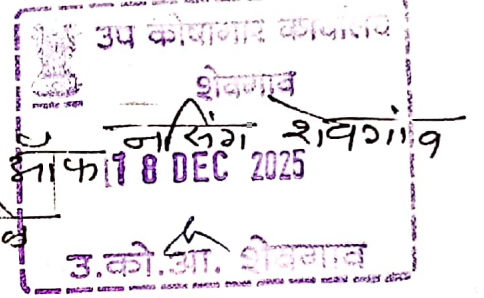 उप कोषागार कार्यालय
शेवगाव
नर्सिंग शेवगांव
ऑफ
18 DEC 2025
उ.को.अ. शेवगाव